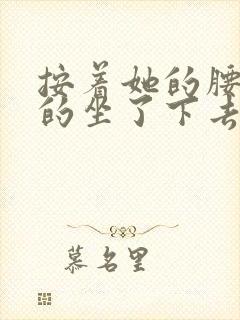 按着她的腰
的坐了下去
慕名里